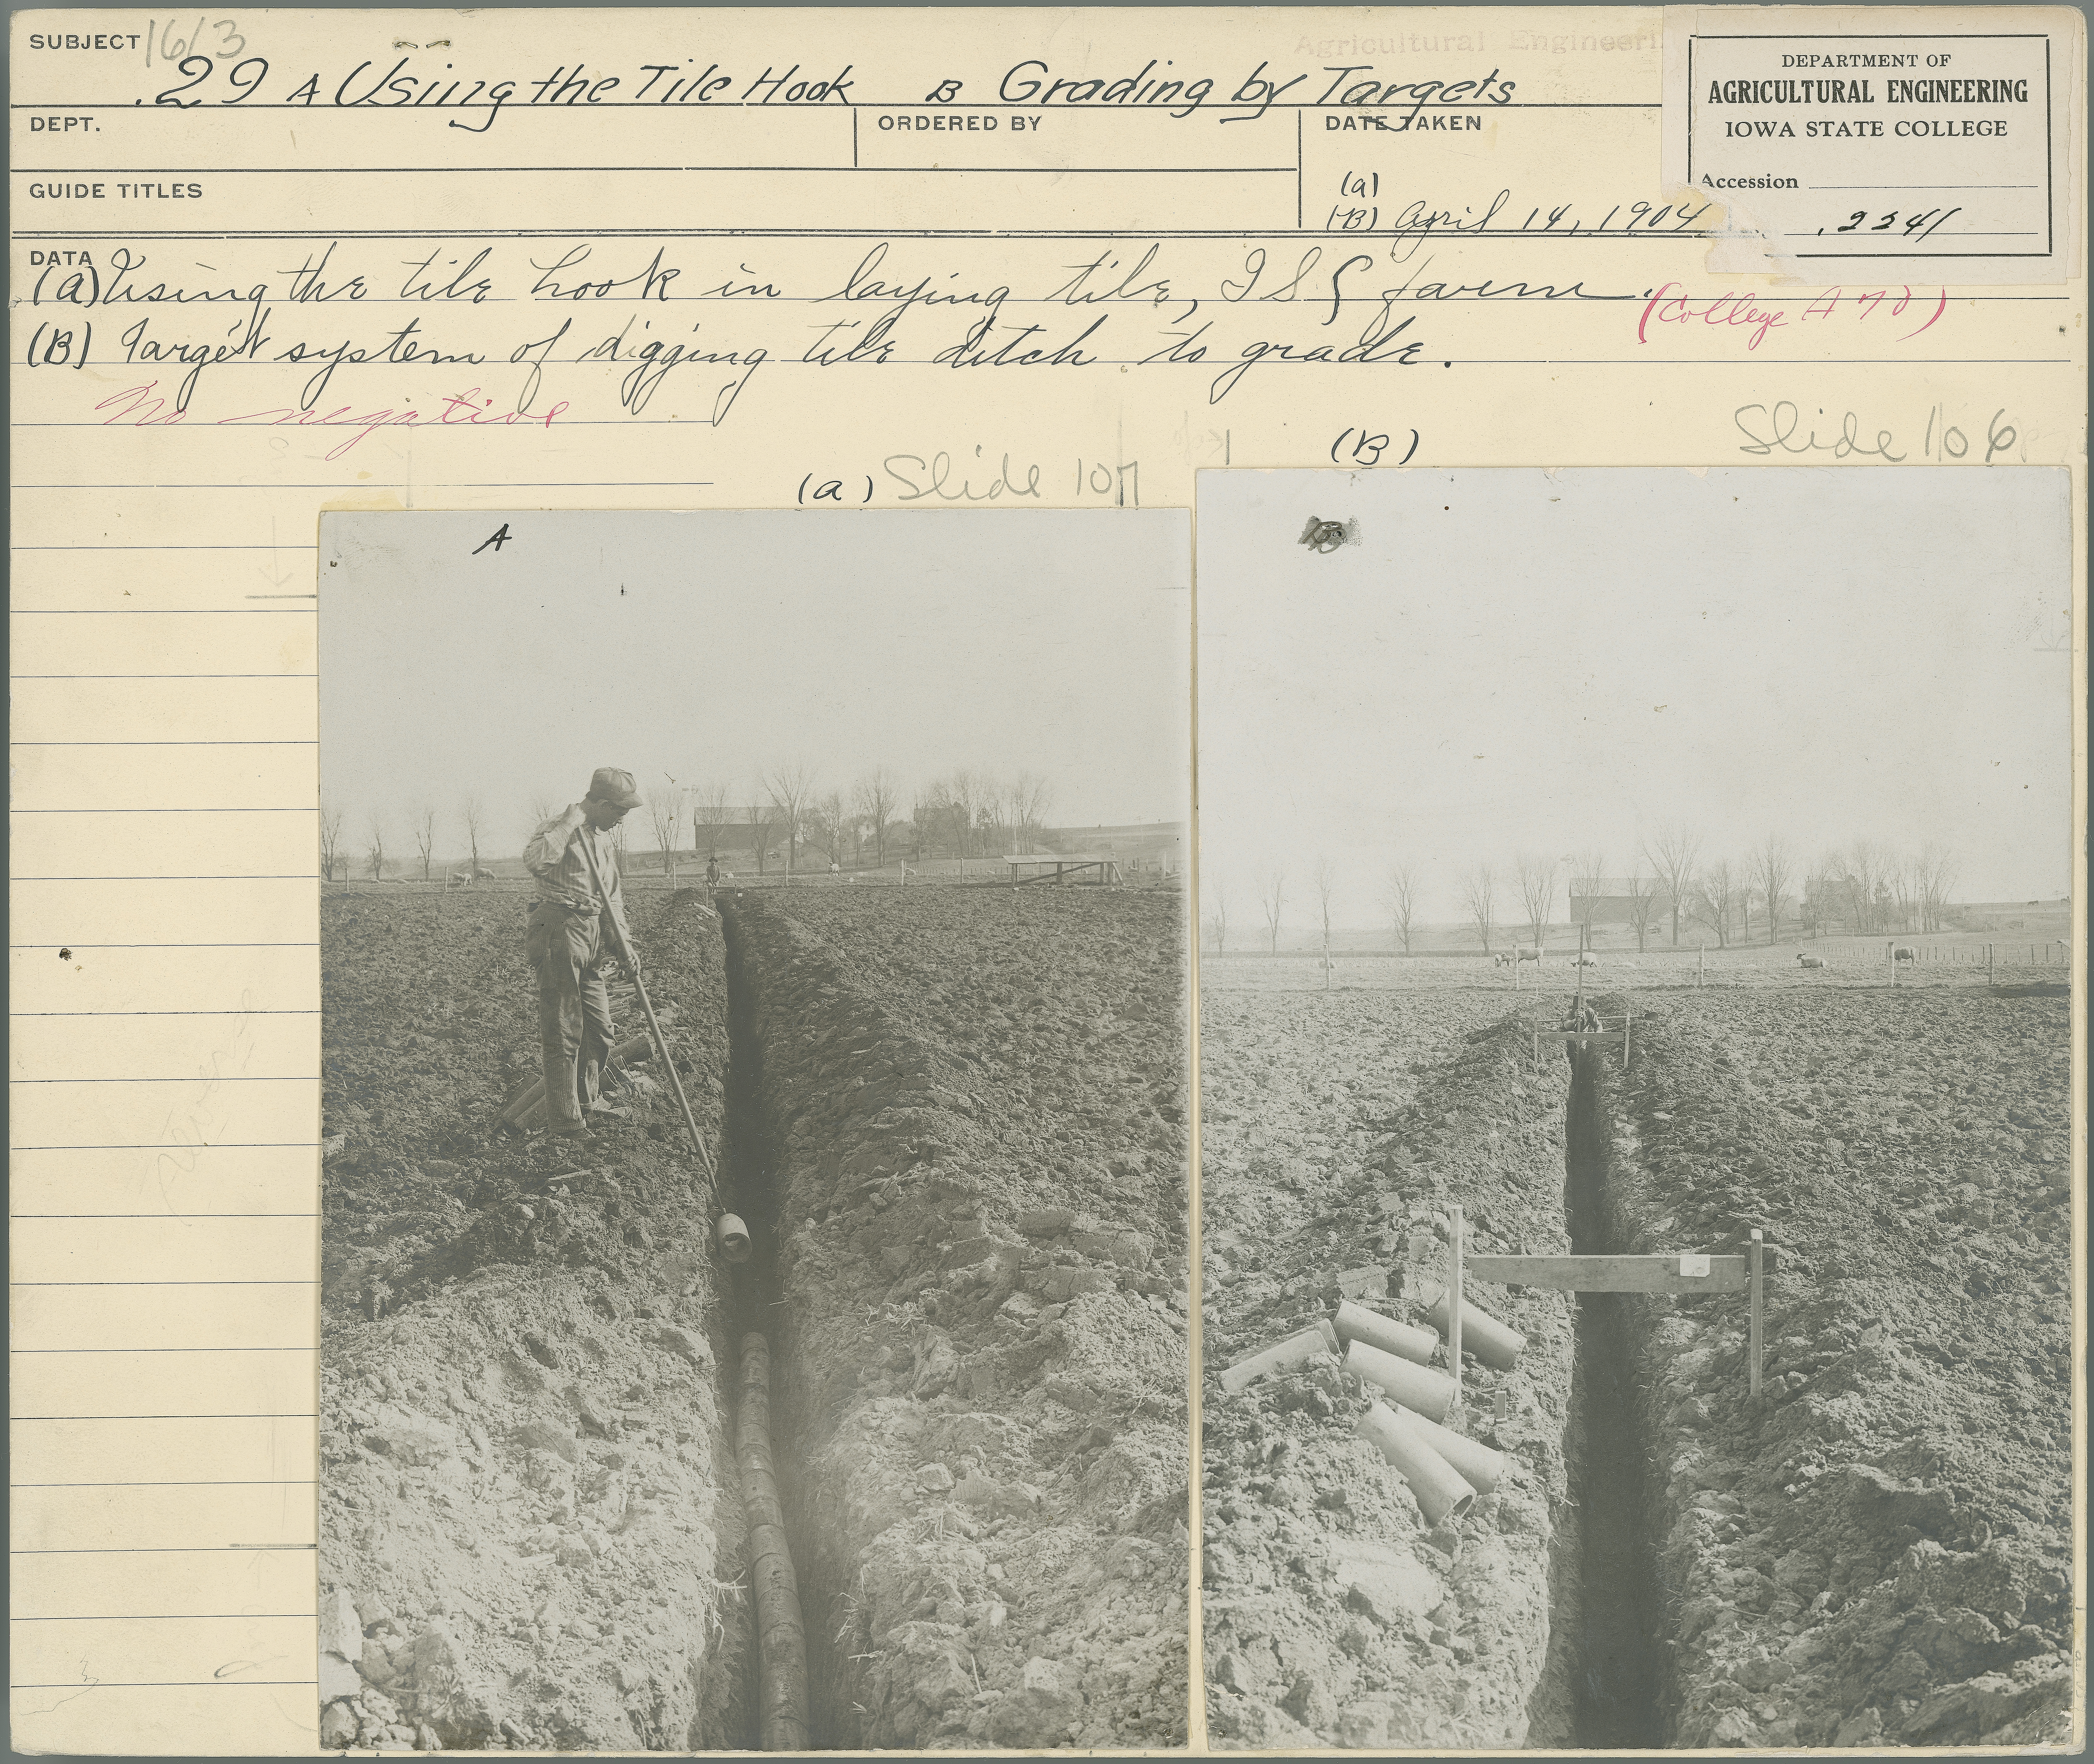 SUBJECT 1613
.29 A Using the Tile Hook B Grading by Targets
Agricultural Engineeri
DEPARTMENT OF
AGRICULTURAL ENGINEERING
IOWA STATE COLLEGE
Accession
.2241
DEPT.
ORDERED BY
DATE TAKEN
(a)
(B) April 14, 1904
GUIDE TITLES
DATA
(a) Using the tile hook in laying tile, I S farm.
(College
(B) Target system of digging tile ditch to grade.
No negative
(a) Slide 107
(B) Slide 106
A
B